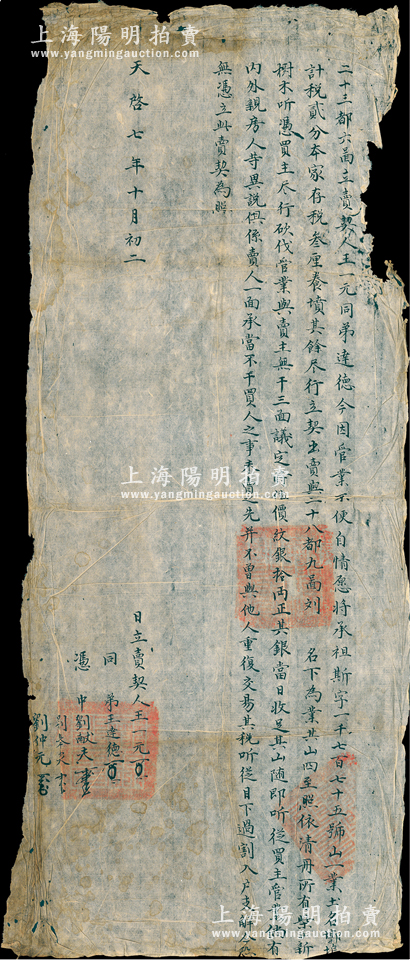 上海陽明拍賣
www.yangmingauction.com
二十三都六啚立賣契人王一元同弟達德今因管業不便自情愿將承祖斯字一千七百七十五號山一業土名
計稅貳分本家存稅叁厘養墳其餘尽行立契出賣與二十八都九啚刘 名下為業其山四至照依清冊所有柴薪
樹木听憑買主尽行砍伐管業與賣主無干三面議定 價紋銀拾両正其銀當日收足其山随即听従買主管業倘有
内外親房人等異説俱係賣人一面承當不干買人之事 先并不曾與他人重復交易其稅听従目下過割入户支解今恐
無憑立此賣契為照
天啓七年十月初二
日立賣契人王一元
同弟王達德
憑中劉獻夫
劉仲元
上海陽明拍賣
www.yangmingauction.com
上海陽明拍賣
www.yangmingauction.com